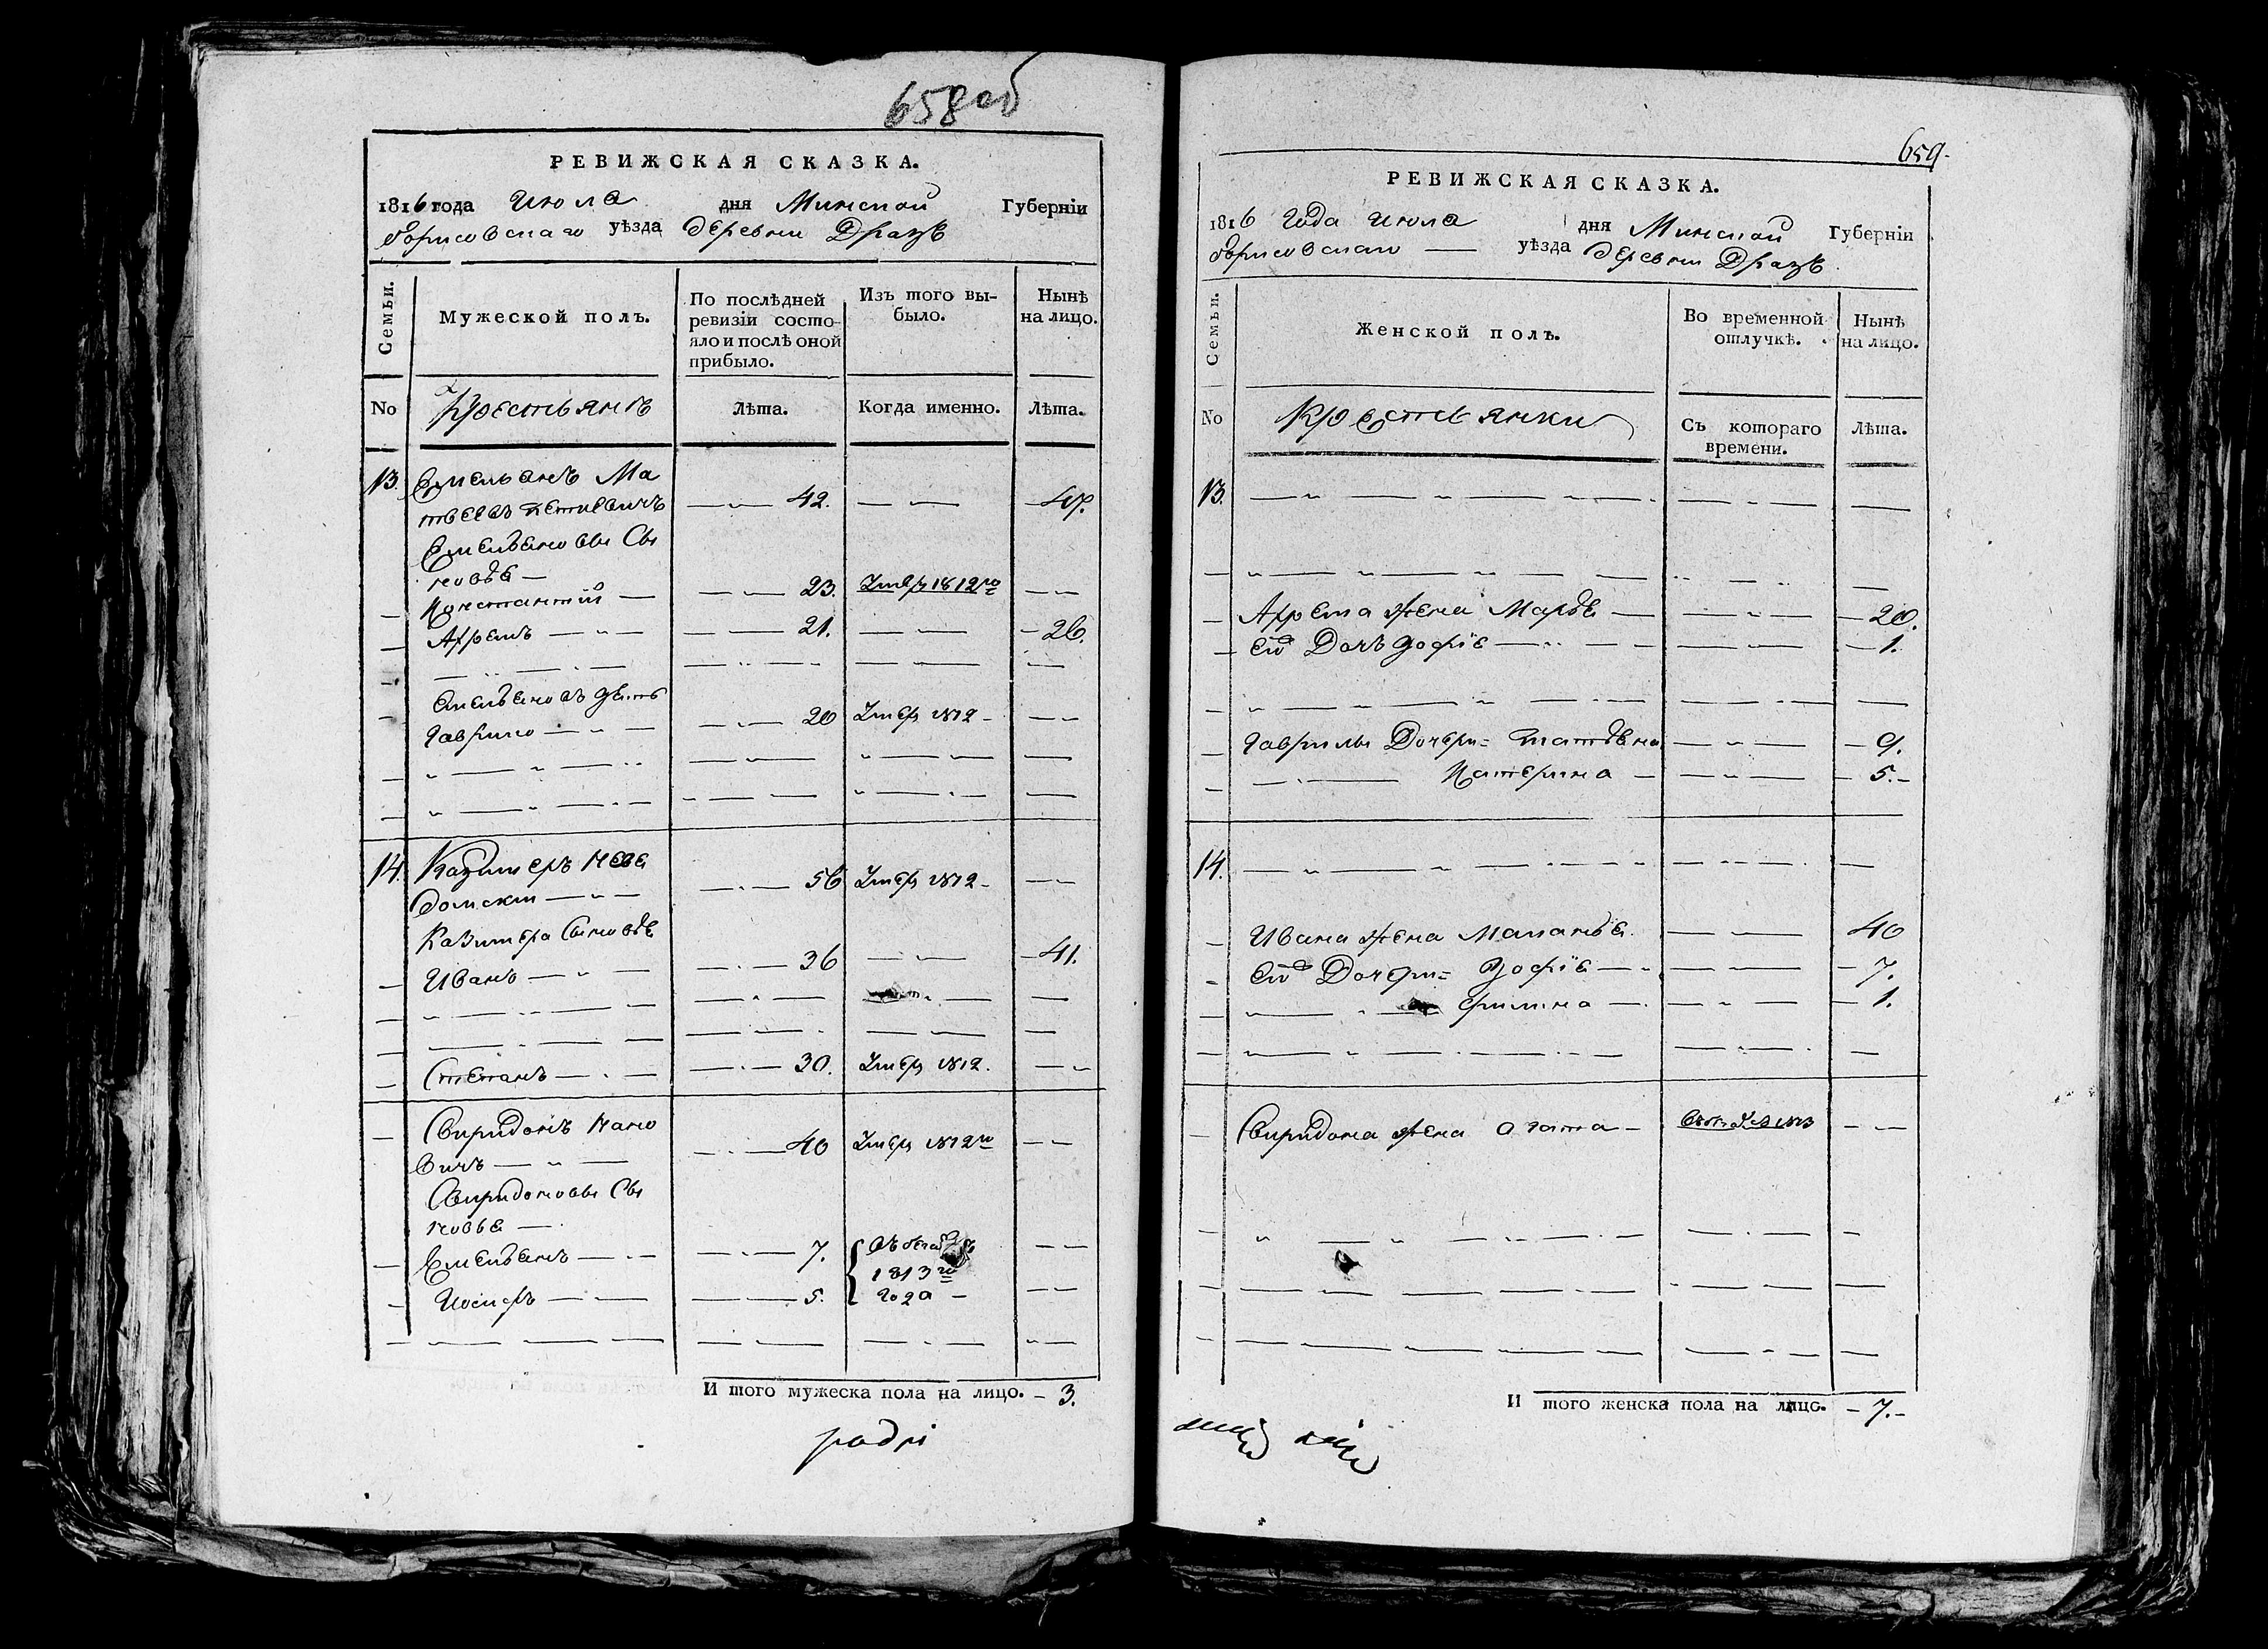 658 об
РЕВИЖСКАЯ СКАЗКА.
1816 года Июля дня Минской Губерніи
борисовскаго уѣзда деревни Дразѣ
Семьи.
Мужеской полъ.
По послѣдней ревизіи состо-
яло и послѣ оной прибыло.
Изъ того вы-
было.
Нынѣ на лицо.
No
Крестьянѣ
Лѣта.
Когда именно.
Лѣта.
13. Емельянъ Ма
твеевъ 42. 47.
Емельяновы Сы
новья
Константій 23. Умеръ 1812го
Ахремъ 21. 26.
Емельяновъ зять
Гаврило 20 Умеръ 1812
14. Казимеръ
56 Умеръ 1812
Казимера Сыновья
Иванъ 36 41.
Степанъ 30. Умеръ 1812.
Свиридонъ Нано
вичъ 40 Умеръ 1812го
Свиридоновы Сы
новья
Емельянъ 7.
1813го
Иосифъ 5. года
И того мужеска пола на лицо. 3.
659.
РЕВИЖСКАЯ СКАЗКА.
1816 Года Июля дня Минской Губерніи
борисовскаго уѣзда деревни Дразѣ
Семьи.
Женской полъ.
Во временной
отлучкѣ.
Нынѣ
на лицо.
No
Крестьянки
Съ котораго
времени.
Лѣта.
13.
Ахрема жена Марья 20.
его Дочь Зофія 1.
Гаврилы Дочери= Татьяна 9.
Катерина 5.
14.
Ивана жена Маланья 40
его Дочери= Зофія 7.
1.
Свиридона жена Агата
И того женска пола на лицо. 7.